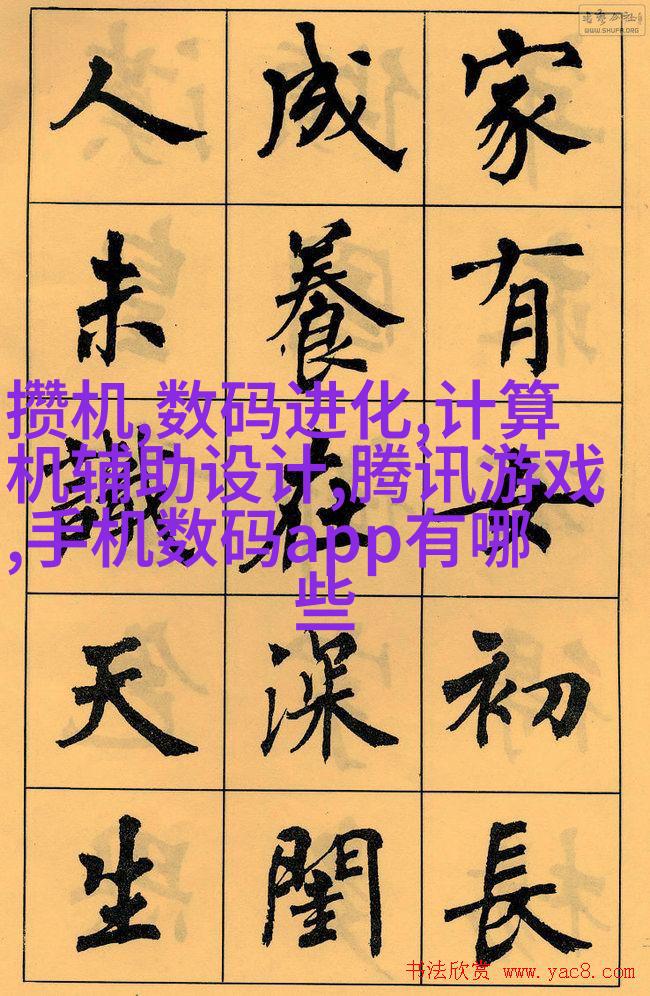 WWW.SHUFA.ORG
家有女初長
成養在深閨
人未識天生
攒机,数码进化,计算
机辅助设计,腾讯游戏
,手机数码app有哪
些
书法欣赏 www.yac8.com